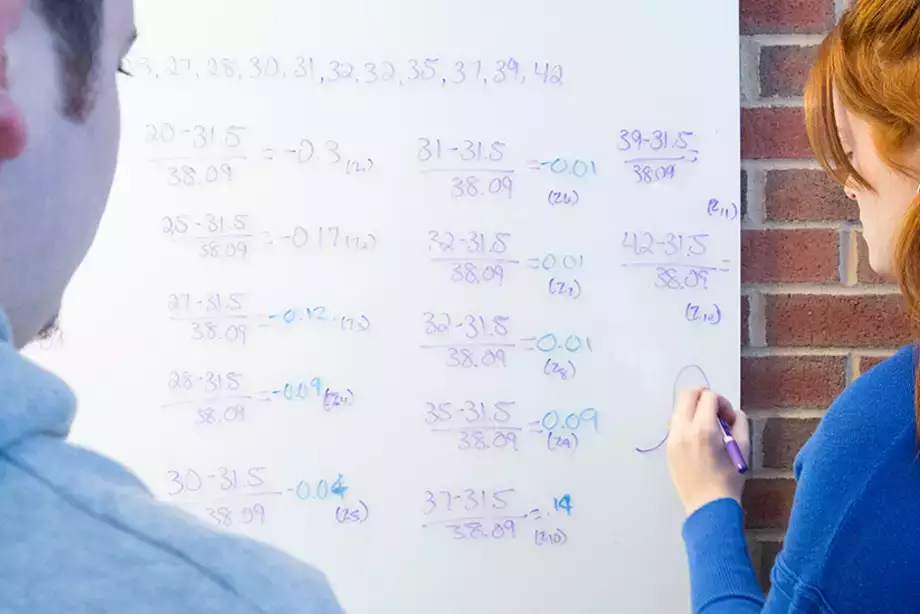 27, 28, 30, 31, 32, 32, 35, 37, 39, 42
20-31.5
38.09
= -0.3 (z₁)
25-31.5
38.09
= -0.17 (z₂)
27-31.5
38.09
= -0.12 (z₃)
28-31.5
38.09
= -0.09 (z₄)
30-31.5
38.09
-0.04
(z₅)
31-31.5
38.09
= -0.01
(z₆)
32-31.5
38.09
= 0.01
(z₇)
32-31.5
38.09
= 0.01
(z₈)
35-31.5
38.09
= 0.09
(z₉)
37-31.5
38.09
= .14
(z₁₀)
39-31.5
38.09
=
(z₁₁)
42-31.5
38.09
=
(z₁₂)